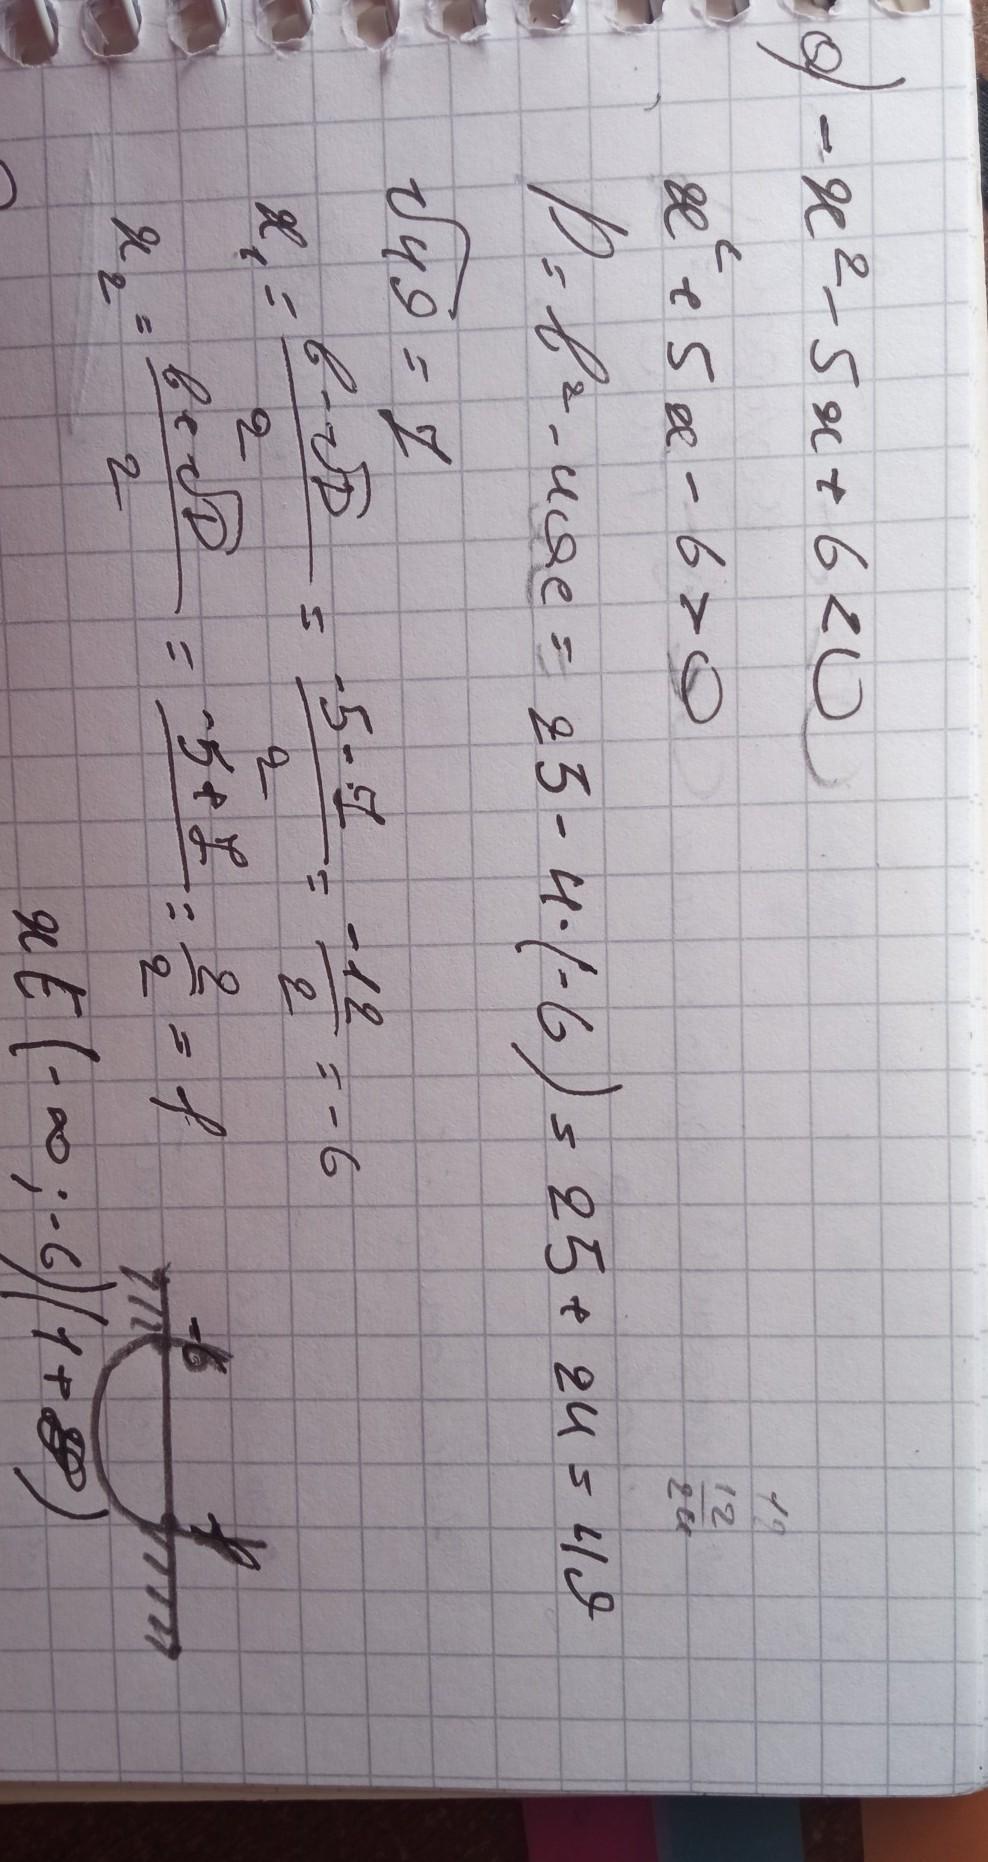 a) -x² - 5x + 6 < 0
x² + 5x - 6 > 0
12
24
D = b² - 4ac = 25 - 4·(-6) = 25 + 24 = 49
√49 = 7
x₁ = (b - √D)/2 = (-5 - 7)/2 = -12/2 = -6
x₂ = (b + √D)/2 = (-5 + 7)/2 = 2/2 = 1
-6 1
x ∈ (-∞; -6)(1 + ∞)